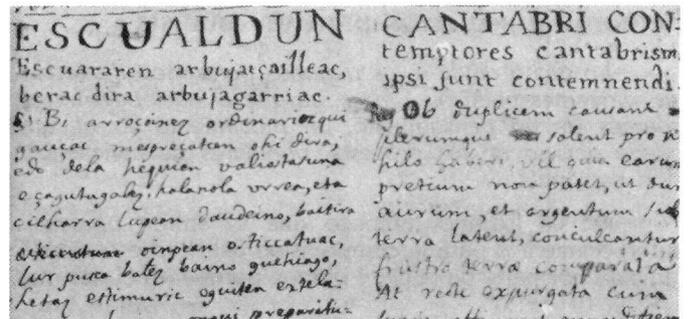 ESCUALDUN
Escuararen arbujatçailleac,
berac dira arbujagarriac.
Bi arroçoinez ordinarioz qui
gauçac mespreçatcen ohi dira,
edo dela hequien valiostasuna
eçagutu gabez, halanola vrrea, eta
cilharra lupean daudeino, baitira
oinpean orticcatuac,
lur pusca batez baino guehiago,
hetaz estimuric eguiten eztela:
preparitu-
CANTABRI CON-
temptores cantabrism
ipsi sunt contemnendi.
Ob duplicem causam
plerumque solent pro ni
hilo haberi, vel quia earum
pretium non patet, ut dum
aurum, et argentum sub
terra latent, conculcantur
frustro terræ comparata
At recte expurgata cum